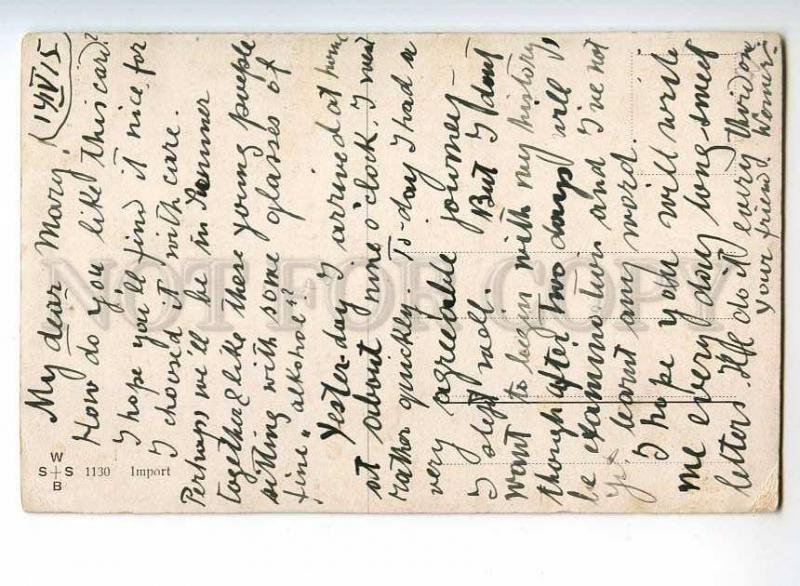 14/V 15
My dear Mary!
How do you like this card?
I hope you'll find it nice for
I choosed it with care.
Perhaps we'll be in Summer
together & like these young people
sitting with some glasses of
fine "alkohol"!?
Yester-day I arrived at home
at about nine o'clock. I went
rather quickly. To-day I had a
very agreetable journey
I slept well. But I dont
want to begin with my history
though after two days will
be examination and I've not
yet learnt any word.
I hope you will write
me every day long sweet
letters. do it every
your friend.
W
S + S 1130 Import
B
NOT FOR COPY